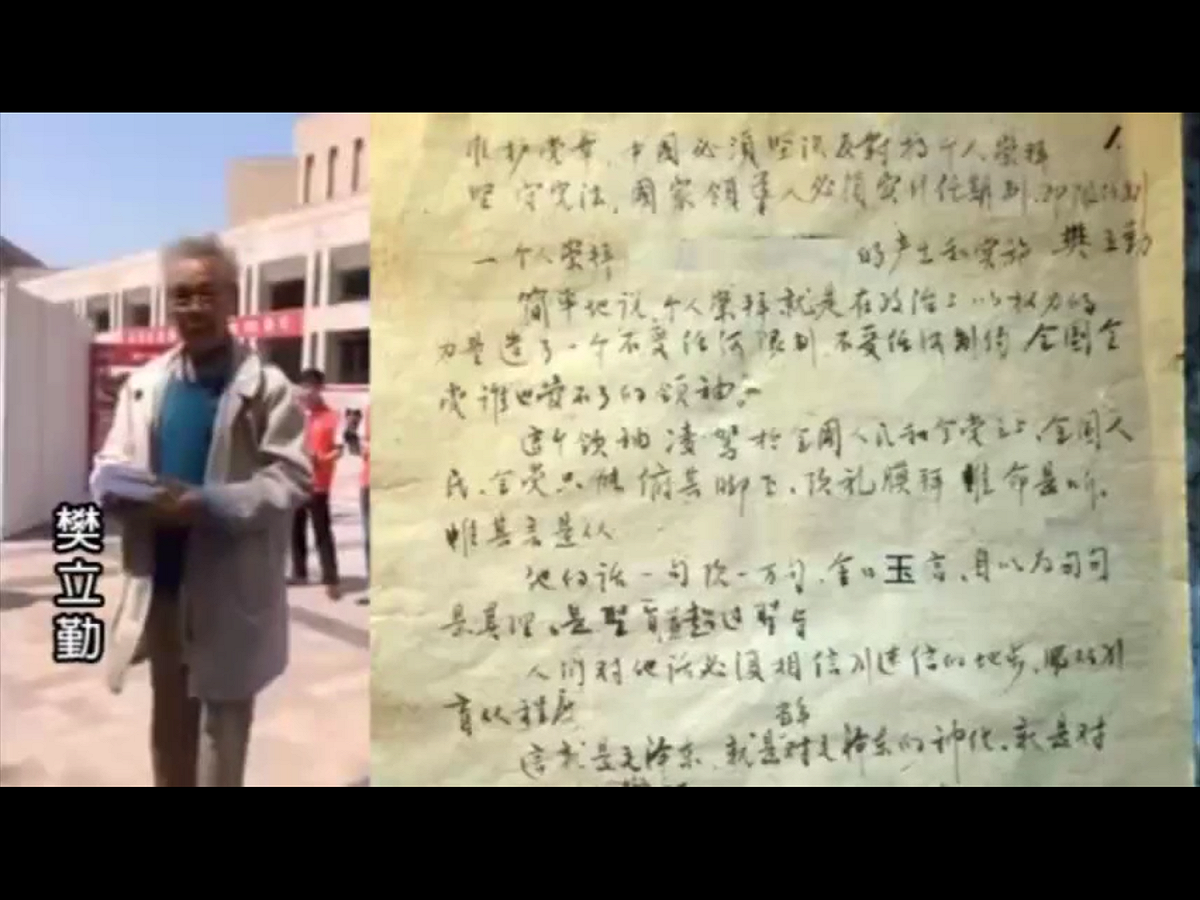 樊立勤
维护党章,中国必须坚决反对搞个人崇拜 1.
坚守宪法,国家领导人必须实行任期制,
一 个人崇拜 的产生和实施 樊立勤
简单地说,个人崇拜就是在政治上以权力的
力量造了一个不受任何限制,不受任何制约 全国全
党谁也管不了的领袖。
这个领袖凌驾于全国人民和全党之上,全国人
民、全党只能俯其脚下、顶礼膜拜 惟命是听,
惟其言是从
他的话一句顶一万句,金口玉言,自以为句句
是真理,是圣旨超过圣旨
人们对他话必须相信到迷信的地步,服从到
盲从程度 当年
这就是毛泽东,就是对毛泽东的神化,就是对